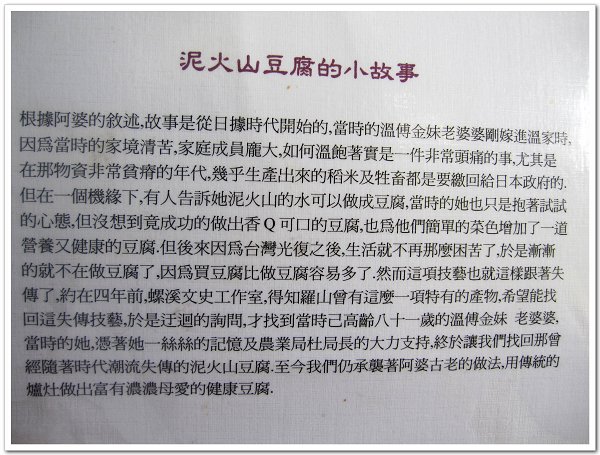 泥火山豆腐的小故事
根據阿婆的敘述,故事是從日據時代開始的,當時的溫傅金妹老婆婆剛嫁進溫家時,
因為當時的家境清苦,家庭成員龐大,如何溫飽著實是一件非常頭痛的事,尤其是
在那物資非常貧瘠的年代,幾乎生產出來的稻米及牲畜都是要繳回給日本政府的.
但在一個機緣下,有人告訴她泥火山的水可以做成豆腐,當時的她也只是抱著試試
的心態,但沒想到竟成功的做出香Q可口的豆腐,也為他們簡單的菜色增加了一道
營養又健康的豆腐.但後來因為台灣光復之後,生活就不再那麼困苦了,於是漸漸
的就不在做豆腐了,因為買豆腐比做豆腐容易多了.然而這項技藝也就這樣跟著失
傳了,約在四年前,螺溪文史工作室,得知羅山曾有這麼一項特有的產物,希望能找
回這失傳技藝,於是迂迴的詢問,才找到當時己高齡八十一歲的溫傅金妹 老婆婆,
當時的她,憑著她一絲絲的記憶及農業局杜局長的大力支持,終於讓我們找回那曾
經隨著時代潮流失傳的泥火山豆腐.至今我們仍承襲著阿婆古老的做法,用傳統的
爐灶做出富有濃濃母愛的健康豆腐.